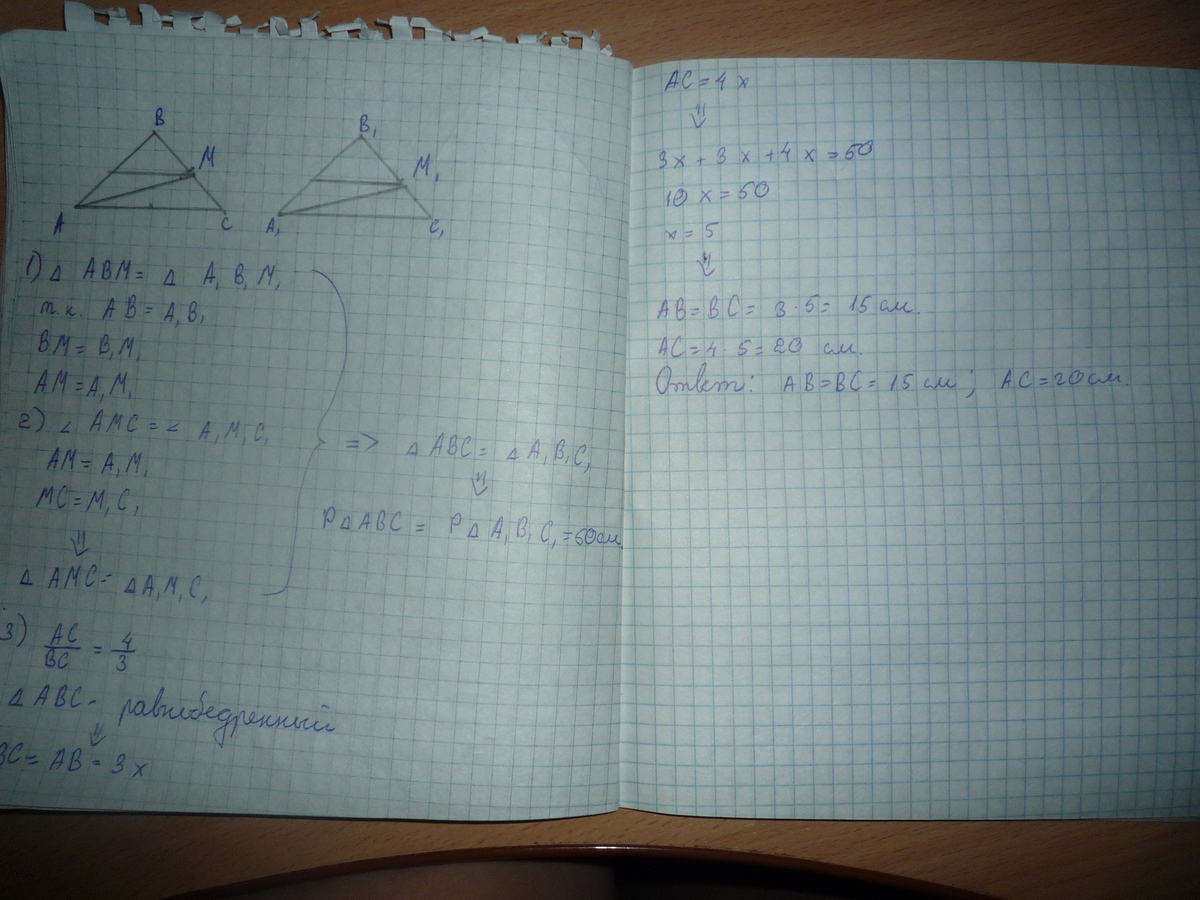 B
M
A
C
B₁
M₁
A₁
C₁
1) Δ ABM = Δ A₁B₁M₁
т.к. AB = A₁B₁
BM = B₁M₁
AM = A₁M₁
2) ∠ AMC = ∠ A₁M₁C₁
AM = A₁M₁
MC = M₁C₁
⇓
Δ AMC = ΔA₁M₁C₁
=> Δ ABC = Δ A₁B₁C₁
⇓
PΔABC = PΔA₁B₁C₁ = 50см.
3) AC/BC = 4/3
Δ ABC - равнобедренный
⇓
BC = AB = 3x
AC = 4x
⇓
3x + 3x + 4x = 50
10x = 50
x = 5
⇓
AB = BC = 3·5 = 15 см.
AC = 4·5 = 20 см.
Ответ: AB = BC = 15 см; AC = 20 см.